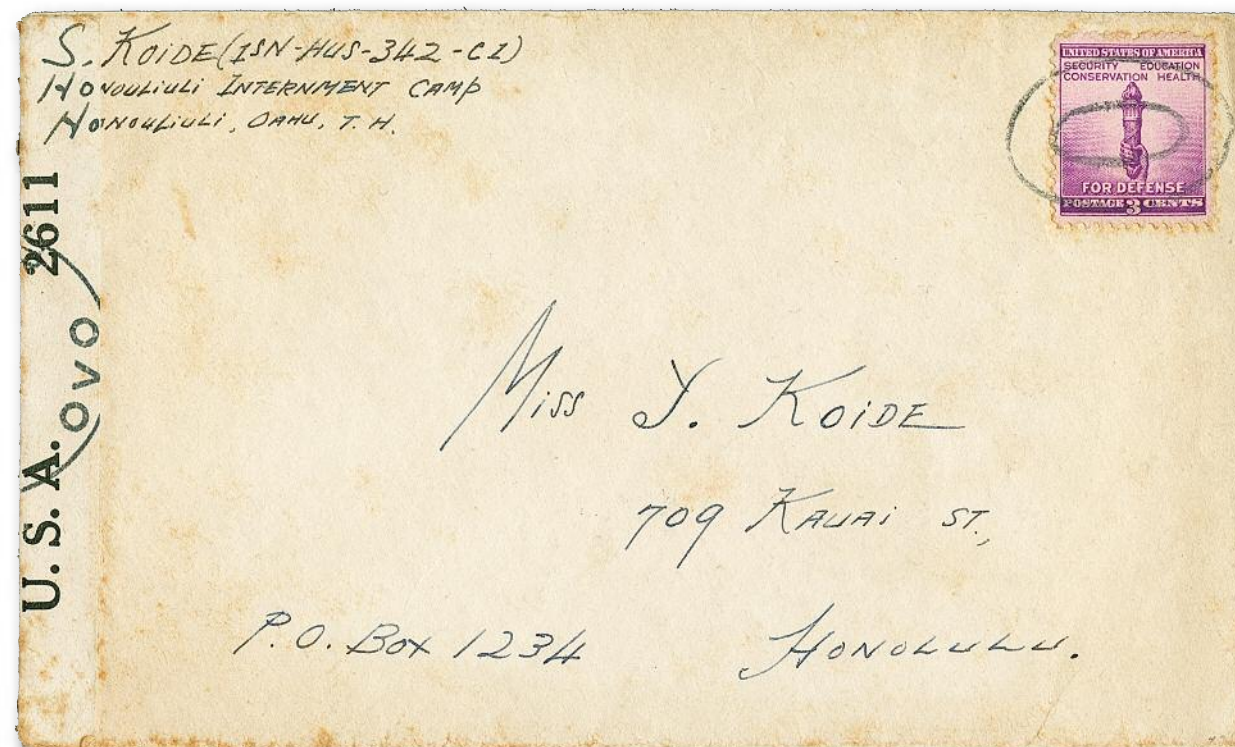 S. KOIDE (ISN-HUS-342-CI)
HONOULIULI INTERNMENT CAMP
HONOULIULI, OAHU, T. H.
UNITED STATES OF AMERICA
SECURITY EDUCATION
CONSERVATION HEALTH
FOR DEFENSE
POSTAGE 3 CENTS
U. S. A. 2611
OVO
MISS Y. KOIDE
709 KAUAI ST.,
P.O. BOX 1234 HONOLULU.